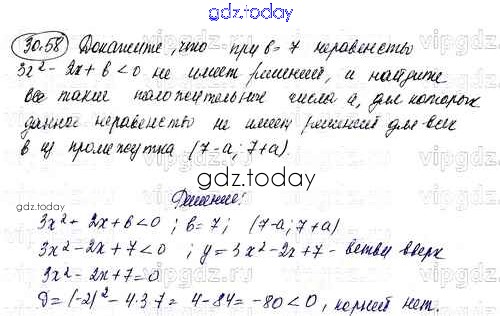 gdz.today
30.58 Докажите, что при b = 7 неравенство
3x² - 2x + b < 0 не имеет решений, и найдите
все такие положительные числа a, для которых
данное неравенство не имеет решений для всех
b из промежутка (7-a; 7+a).
gdz.today
Решение:
3x² + 2x + b < 0 ; b = 7 ; (7-a; 7+a)
3x² - 2x + 7 < 0 ; y = 3x² - 2x + 7 - ветви вверх
3x² - 2x + 7 = 0
D = (-2)² - 4·3·7 = 4 - 84 = -80 < 0, корней нет.
gdz.today